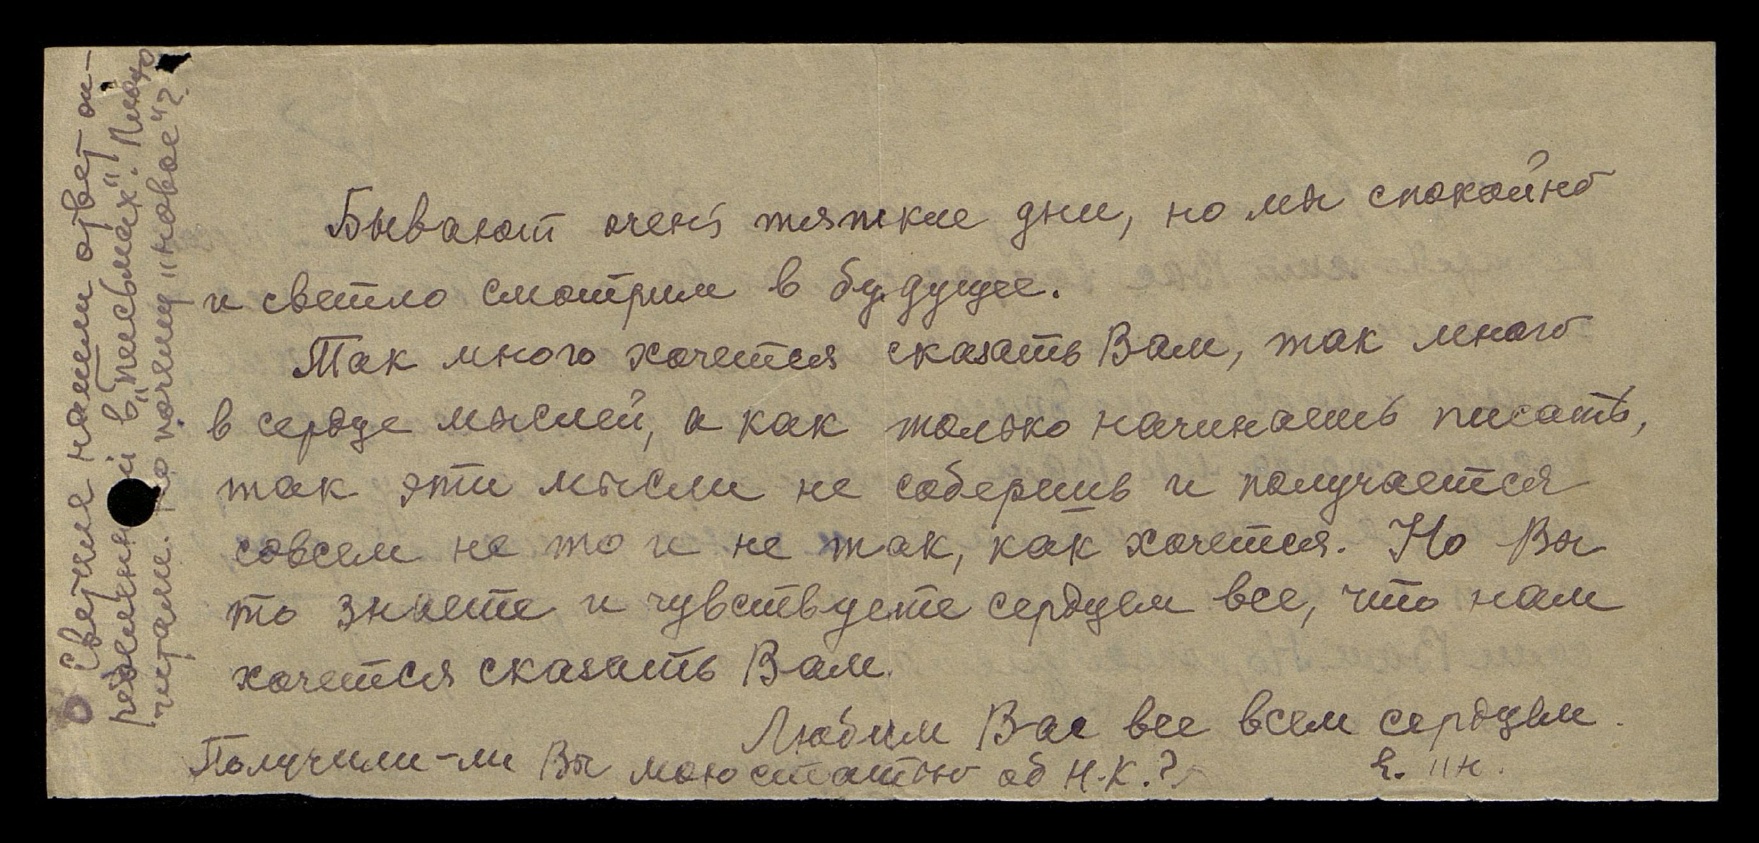 Бывают очень тяжкие дни, но мы спокойно
и светло смотрим в будущее.
Так много хочется сказать Вам, так много
в сердце мыслей, а как только начинаешь писать,
так эти мысли не соберешь и получается
совсем не то и не так, как хочется. Но Вы
то знаете и чувствуете сердцем все, что нам
хочется сказать Вам.
Любим Вас все всем сердцем
Получили-ли Вы мою статью об Н.К.?
О Светике нашли ответ оп-
ределенный в "письмах".
читали. Но почему "новое"?